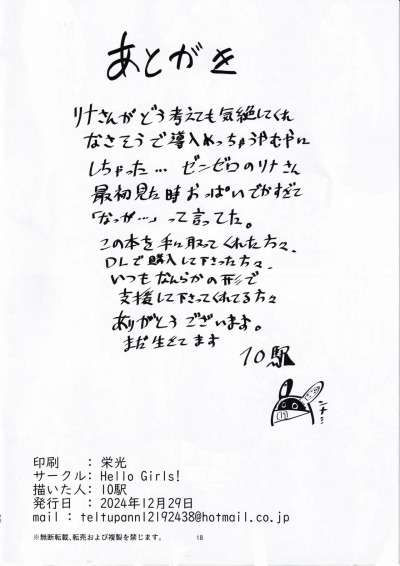 あとがき
リナさんがどう考えても気絶してくれ
なさそうで導入めっちゃうやむやに
しちゃった… ゼンゼロのリナさん
最初見た時おっぱいでかすぎて
「なっが…」って言ってた。
この本を手に取ってくれた方々、
DLで購入して下さった方々、
いつもなんらかの形で
支援して下さってくれてる方々
ありがとうございます。
まだ生きてます
10駅
印刷 : 栄光
サークル: Hello Girls!
描いた人: 10駅
発行日 : 2024年12月29日
mail : teltupannl2192438@hotmail.co.jp
※無断転載、転売および複製を禁じます。
18